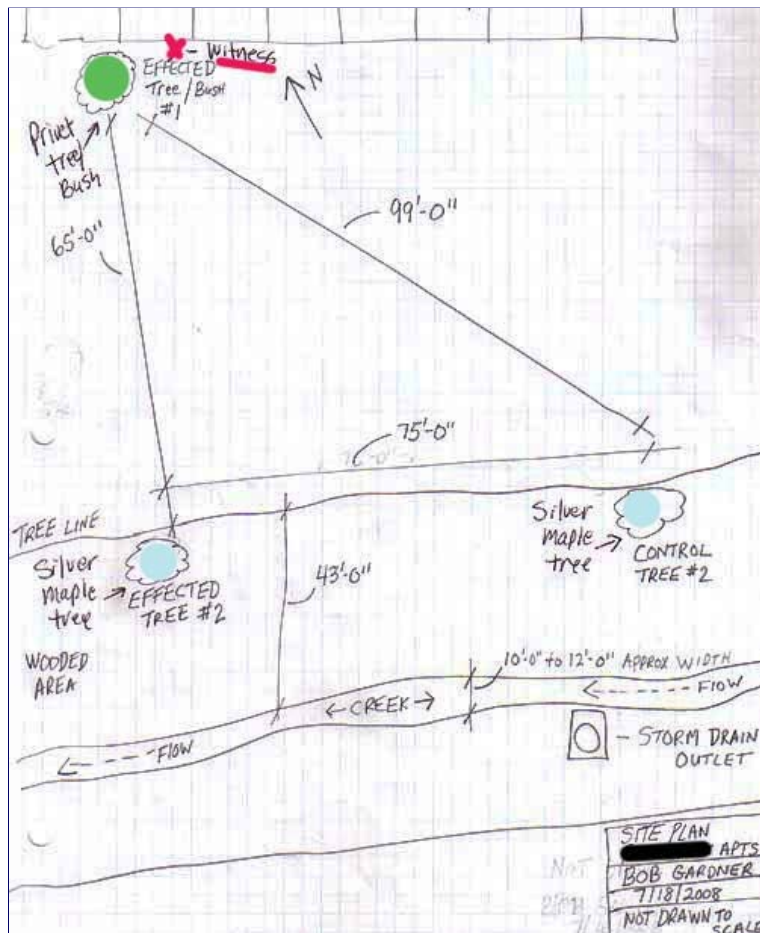 X - Witness
EFFECTED
Tree/Bush
#1
N
Privet
tree/
Bush
65'-0"
99'-0"
75'-0"
TREE LINE
Silver
maple
tree
EFFECTED
TREE #2
Silver
maple
tree
CONTROL
TREE #2
43'-0"
WOODED
AREA
10'-0" to 12'-0" APPROX WIDTH
FLOW
CREEK
FLOW
STORM DRAIN
OUTLET
SITE PLAN
APTS
BOB GARDNER
7/18/2008
NOT DRAWN TO
SCALE